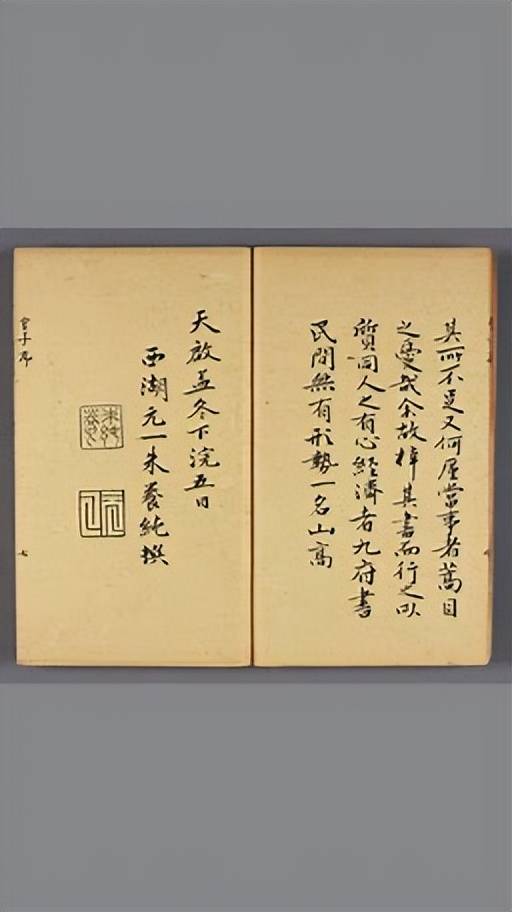 其所不足又何廑當事者蒿目
之憂哉余故梓其書而行之以
質同人之有心經濟者九府書
民間無有形勢一名山高
天啟孟冬下浣五日
西湖元一朱養純撰
朱養純印
元一
管子序
七